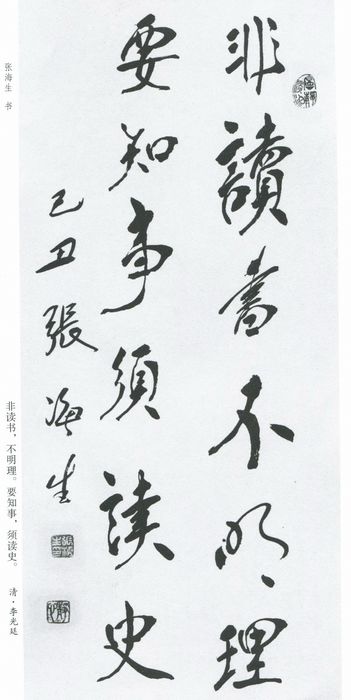 非讀書不明理
要知事須读史
己丑張海生
张海生 书
非读书，不明理。要知事，须读史。
清·李光廷